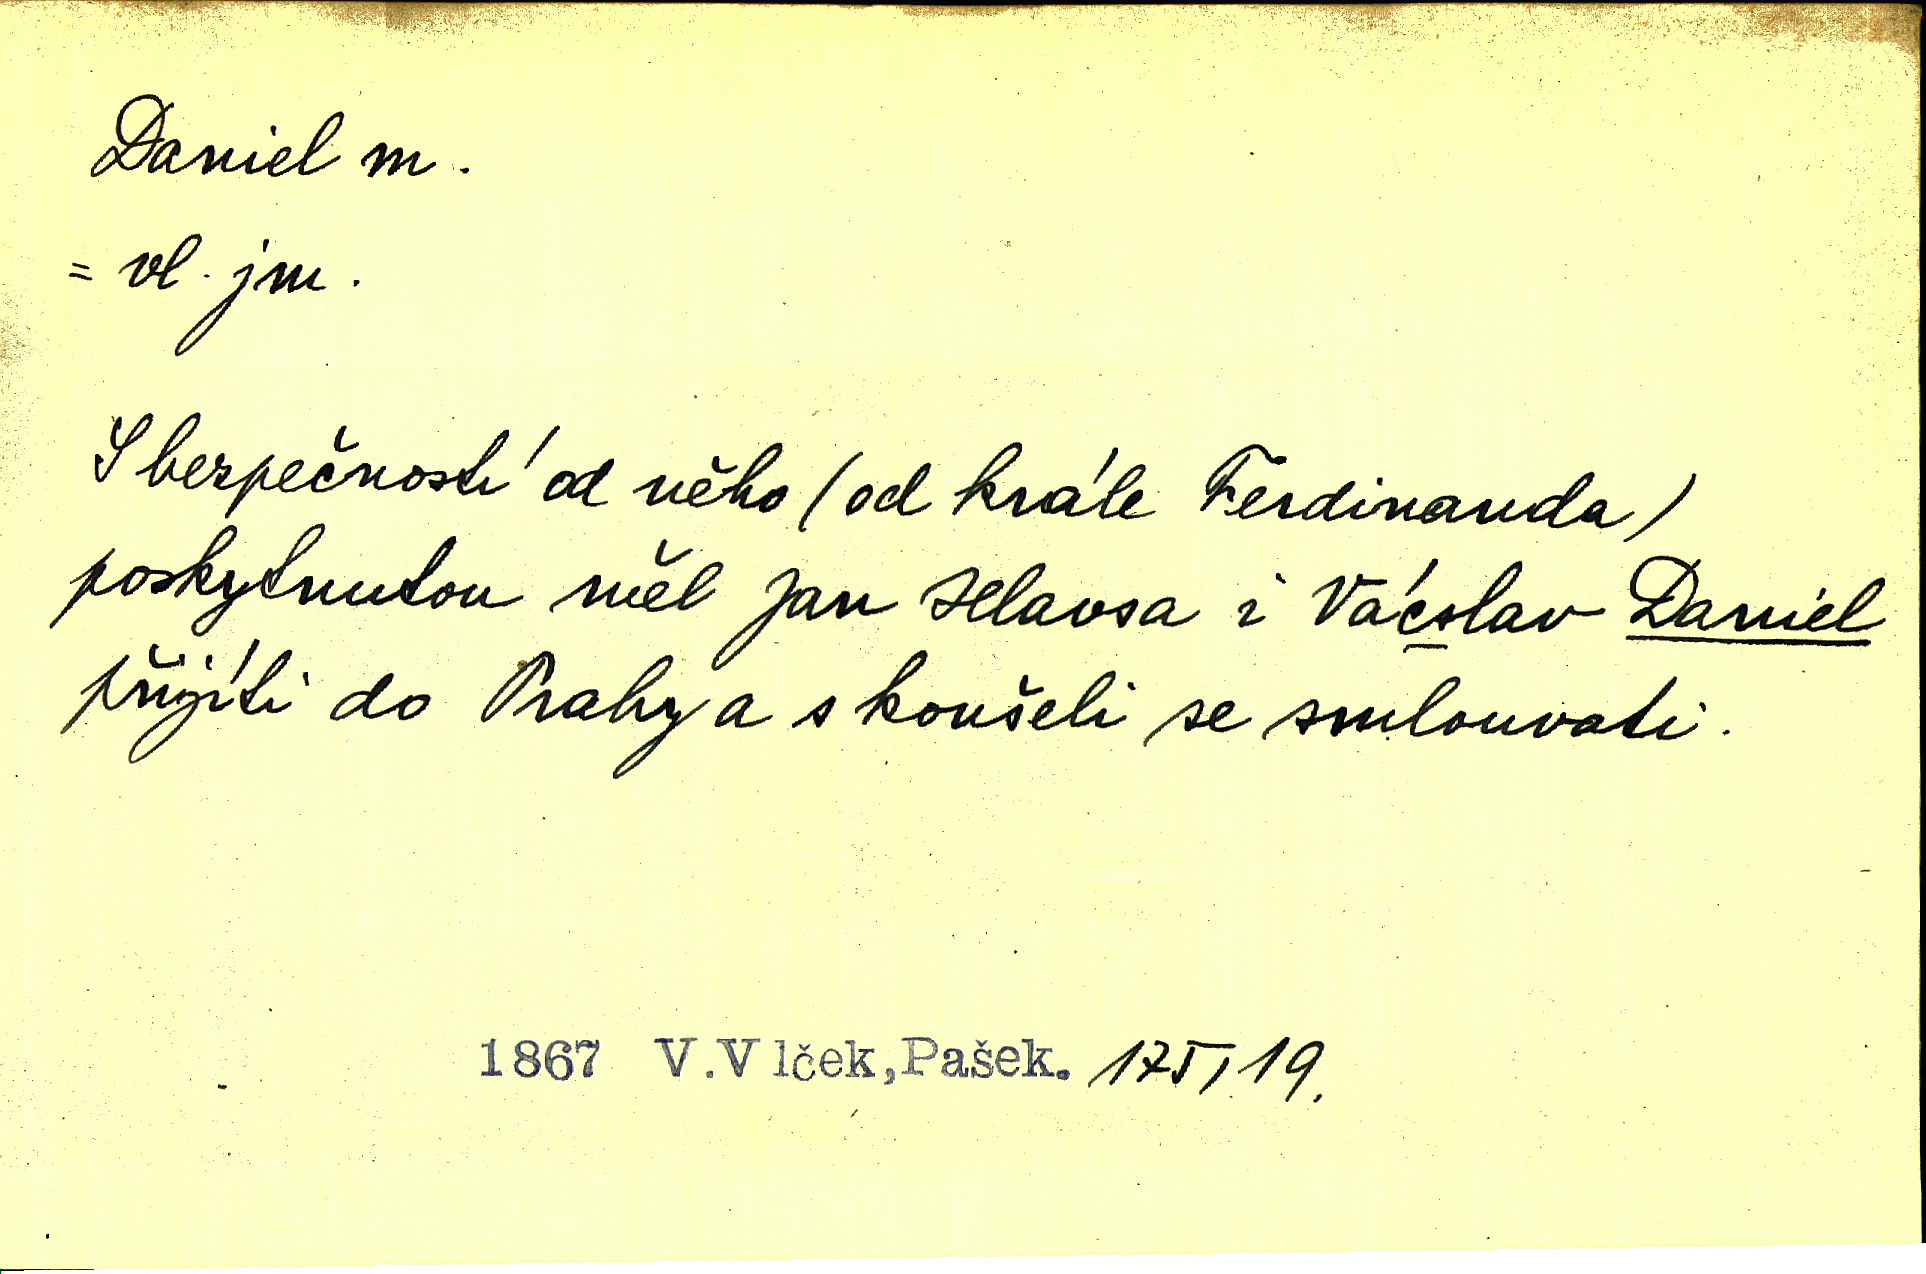 Daniel m.
= vl. jm.
S bezpečností od něho (od krále Ferdinanda)
poskytnutou měl Jan Hlavsa i Vácslav Daniel
přijíti do Prahy a s konšeli se smlouvati.
1867 V.Vlček,Pašek. 19.